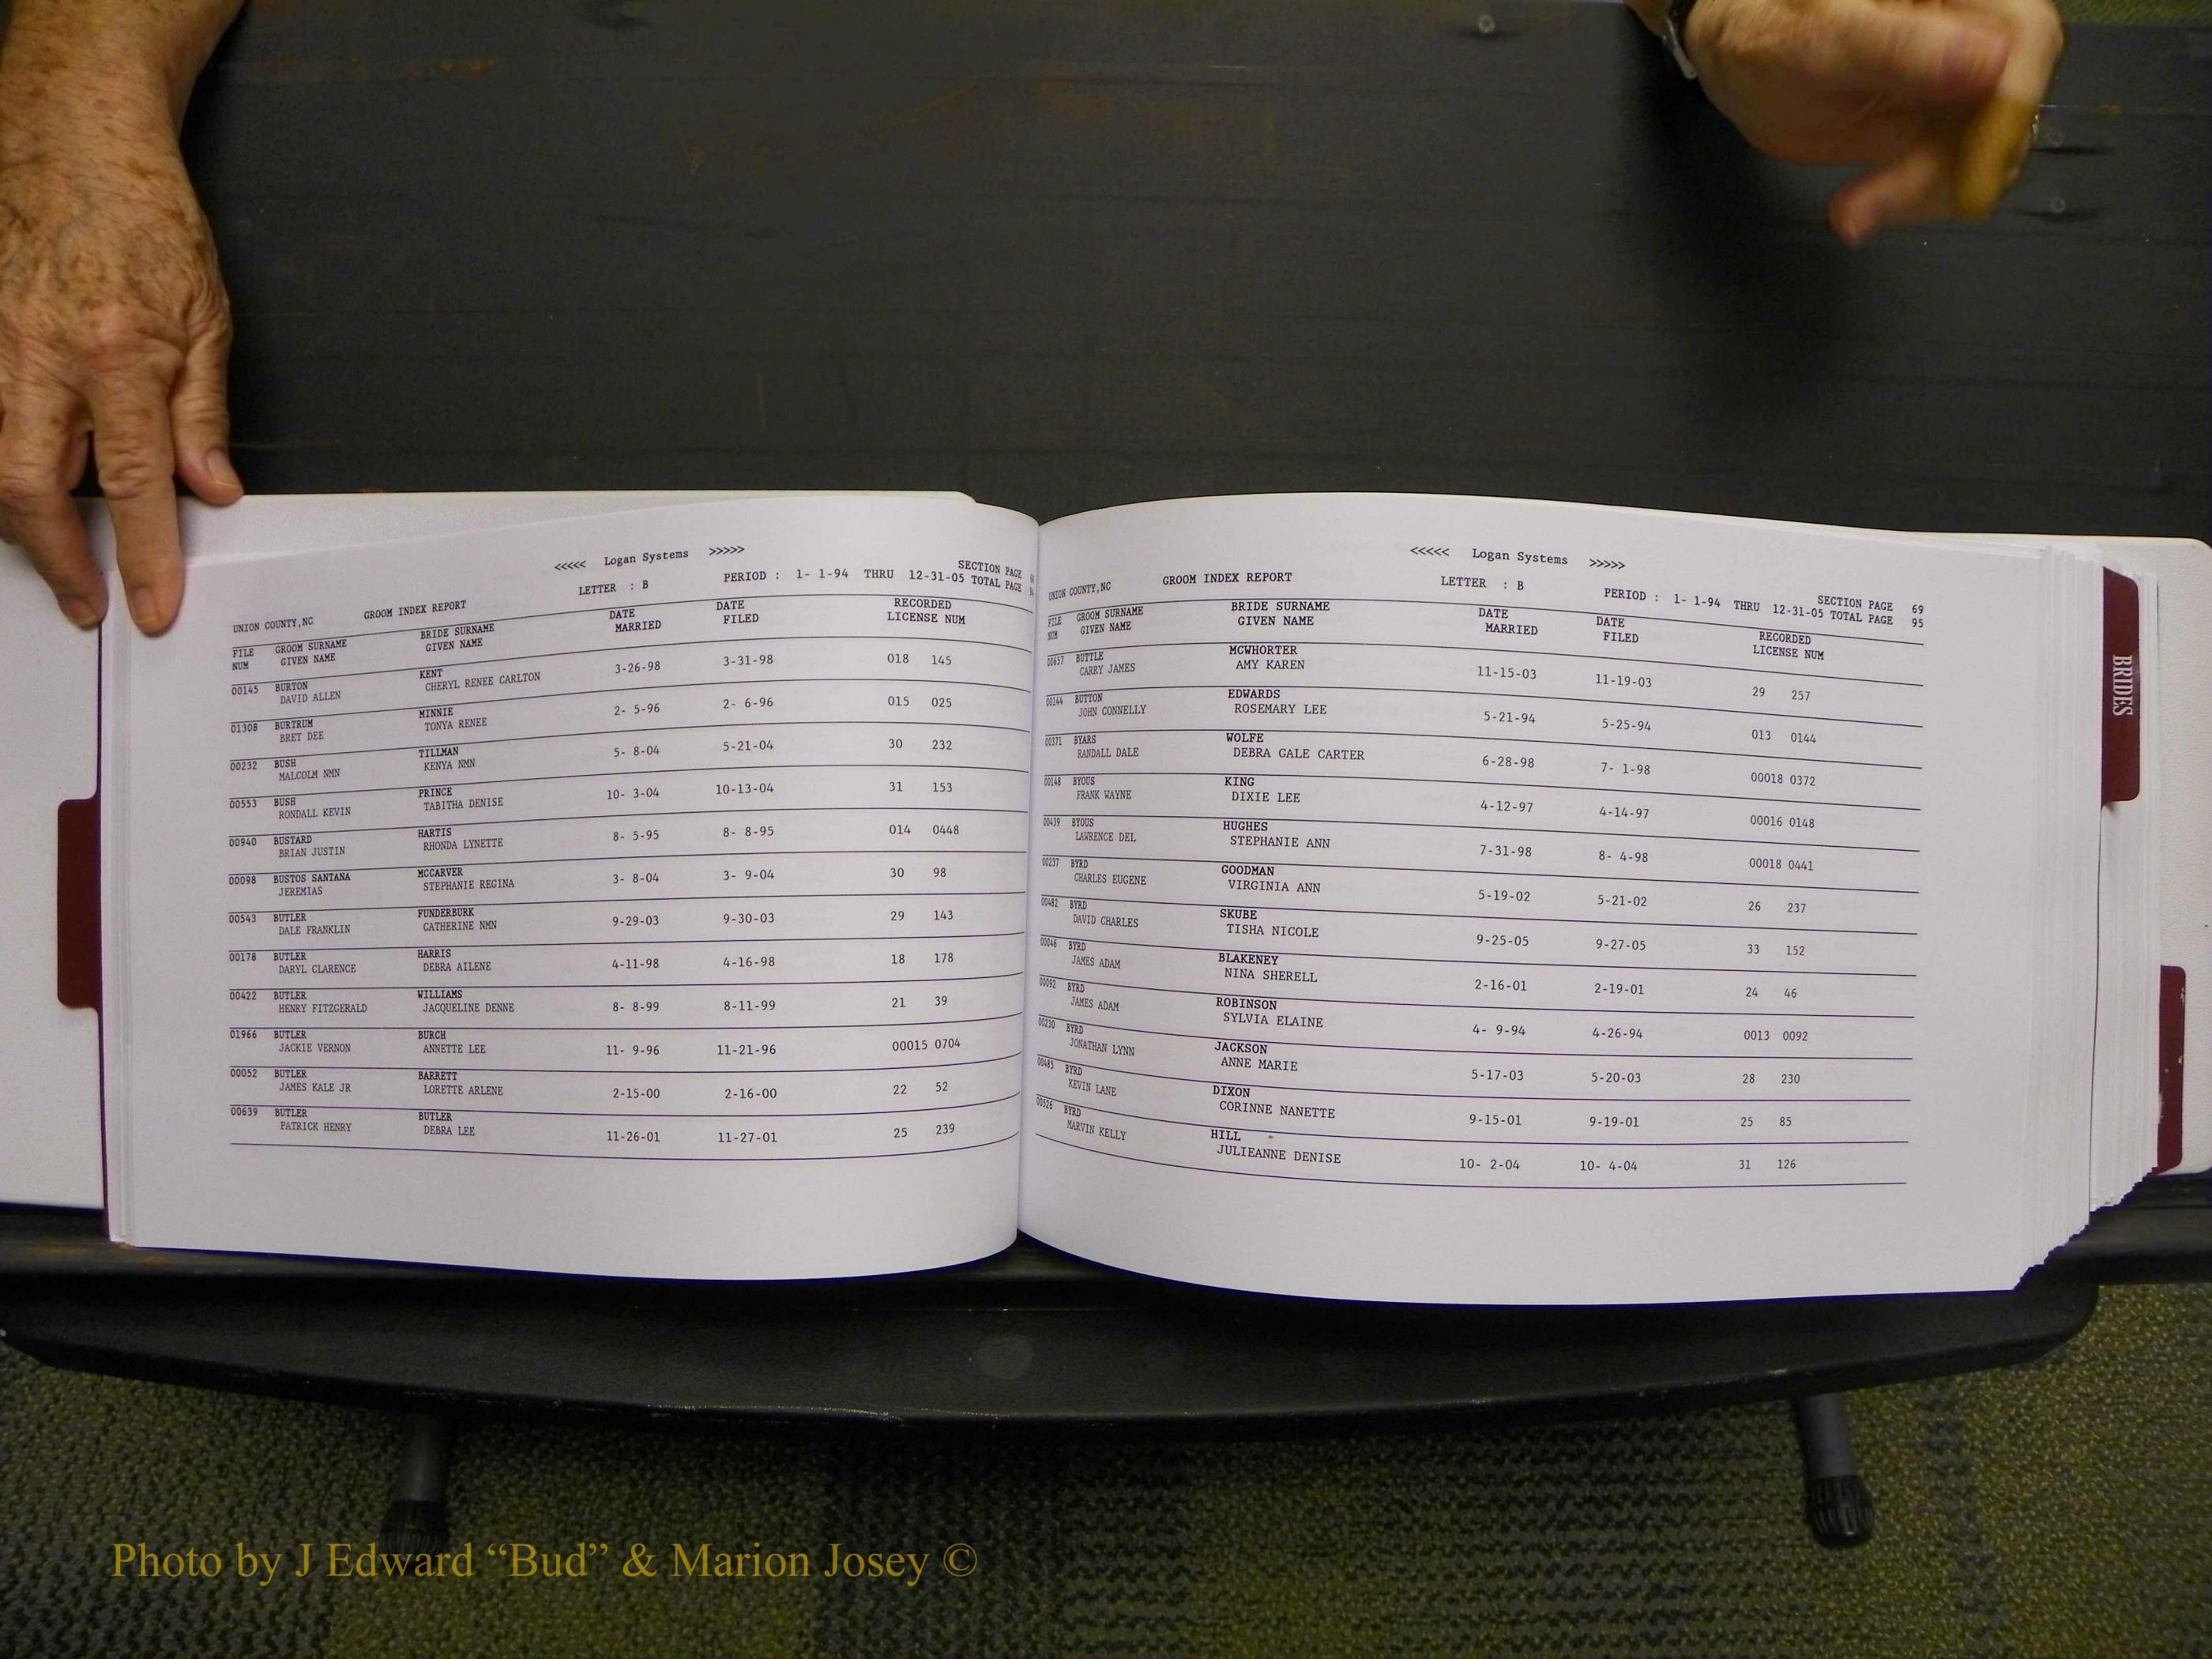 <<<<< Logan Systems >>>>>
SECTION PAGE
UNION COUNTY,NC GROOM INDEX REPORT LETTER : B PERIOD : 1- 1-94 THRU 12-31-05 TOTAL PAGE
FILE GROOM SURNAME BRIDE SURNAME DATE DATE RECORDED
NUM GIVEN NAME GIVEN NAME MARRIED FILED LICENSE NUM
00145 BURTON KENT 3-26-98 3-31-98 018 145
DAVID ALLEN CHERYL RENEE CARLTON
01308 BURTRUM MINNIE 2- 5-96 2- 6-96 015 025
BRET DEE TONYA RENEE
00232 BUSH TILLMAN 5- 8-04 5-21-04 30 232
MALCOLM NMN KENYA NMN
00553 BUSH PRINCE 10- 3-04 10-13-04 31 153
RONDALL KEVIN TABITHA DENISE
00940 BUSTARD HARTIS 8- 5-95 8- 8-95 014 0448
BRIAN JUSTIN RHONDA LYNETTE
00098 BUSTOS SANTANA MCCARVER 3- 8-04 3- 9-04 30 98
JEREMIAS STEPHANIE REGINA
00543 BUTLER FUNDERBURK 9-29-03 9-30-03 29 143
DALE FRANKLIN CATHERINE NMN
00178 BUTLER HARRIS 4-11-98 4-16-98 18 178
DARYL CLARENCE DEBRA AILENE
00422 BUTLER WILLIAMS 8- 8-99 8-11-99 21 39
HENRY FITZGERALD JACQUELINE DENNE
01966 BUTLER BURCH 11- 9-96 11-21-96 00015 0704
JACKIE VERNON ANNETTE LEE
00052 BUTLER BARRETT 2-15-00 2-16-00 22 52
JAMES KALE JR LORETTE ARLENE
00639 BUTLER BUTLER 11-26-01 11-27-01 25 239
PATRICK HENRY DEBRA LEE
<<<<< Logan Systems >>>>>
SECTION PAGE 69
UNION COUNTY,NC GROOM INDEX REPORT LETTER : B PERIOD : 1- 1-94 THRU 12-31-05 TOTAL PAGE 95
FILE GROOM SURNAME BRIDE SURNAME DATE DATE RECORDED
NUM GIVEN NAME GIVEN NAME MARRIED FILED LICENSE NUM
00657 BUTTLE MCWHORTER 11-15-03 11-19-03 29 257
CARRY JAMES AMY KAREN
00144 BUTTON EDWARDS 5-21-94 5-25-94 013 0144
JOHN CONNELLY ROSEMARY LEE
00371 BYARS WOLFE 6-28-98 7- 1-98 00018 0372
RANDALL DALE DEBRA GALE CARTER
00148 BYOUS KING 4-12-97 4-14-97 00016 0148
FRANK WAYNE DIXIE LEE
00439 BYOUS HUGHES 7-31-98 8- 4-98 00018 0441
LAWRENCE DEL STEPHANIE ANN
00237 BYRD GOODMAN 5-19-02 5-21-02 26 237
CHARLES EUGENE VIRGINIA ANN
00482 BYRD SKUBE 9-25-05 9-27-05 33 152
DAVID CHARLES TISHA NICOLE
00046 BYRD BLAKENEY 2-16-01 2-19-01 24 46
JAMES ADAM NINA SHERELL
00092 BYRD ROBINSON 4- 9-94 4-26-94 0013 0092
JAMES ADAM SYLVIA ELAINE
00230 BYRD JACKSON 5-17-03 5-20-03 28 230
JONATHAN LYNN ANNE MARIE
00485 BYRD DIXON 9-15-01 9-19-01 25 85
KEVIN LANE CORINNE NANETTE
00526 BYRD HILL 10- 2-04 10- 4-04 31 126
MARVIN KELLY JULIEANNE DENISE
BRIDES
Photo by J Edward “Bud” & Marion Josey ©